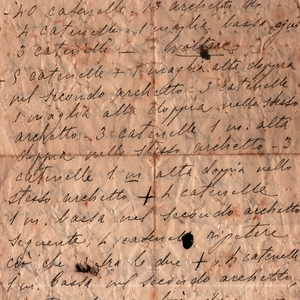 - 40 catenelle - 13 archetti di
4 catenelle - 1 maglia bassa
3 catenelle - voltare -
- 5 catenelle + 1 maglia alta doppia
nel secondo archetto - 3 catenelle
1 maglia alta doppia nello stesso
archetto - 3 catenelle 1 m. alta
doppia nello stesso archetto - 3
catenelle 1 m alta doppia nello
stesso archetto + 4 catenelle
1 m. bassa nel secondo archetto
seguente, 4 catenelle ripetere
ciò che è fra le due +, 4 catenelle
1 m. bassa nel secondo archetto,